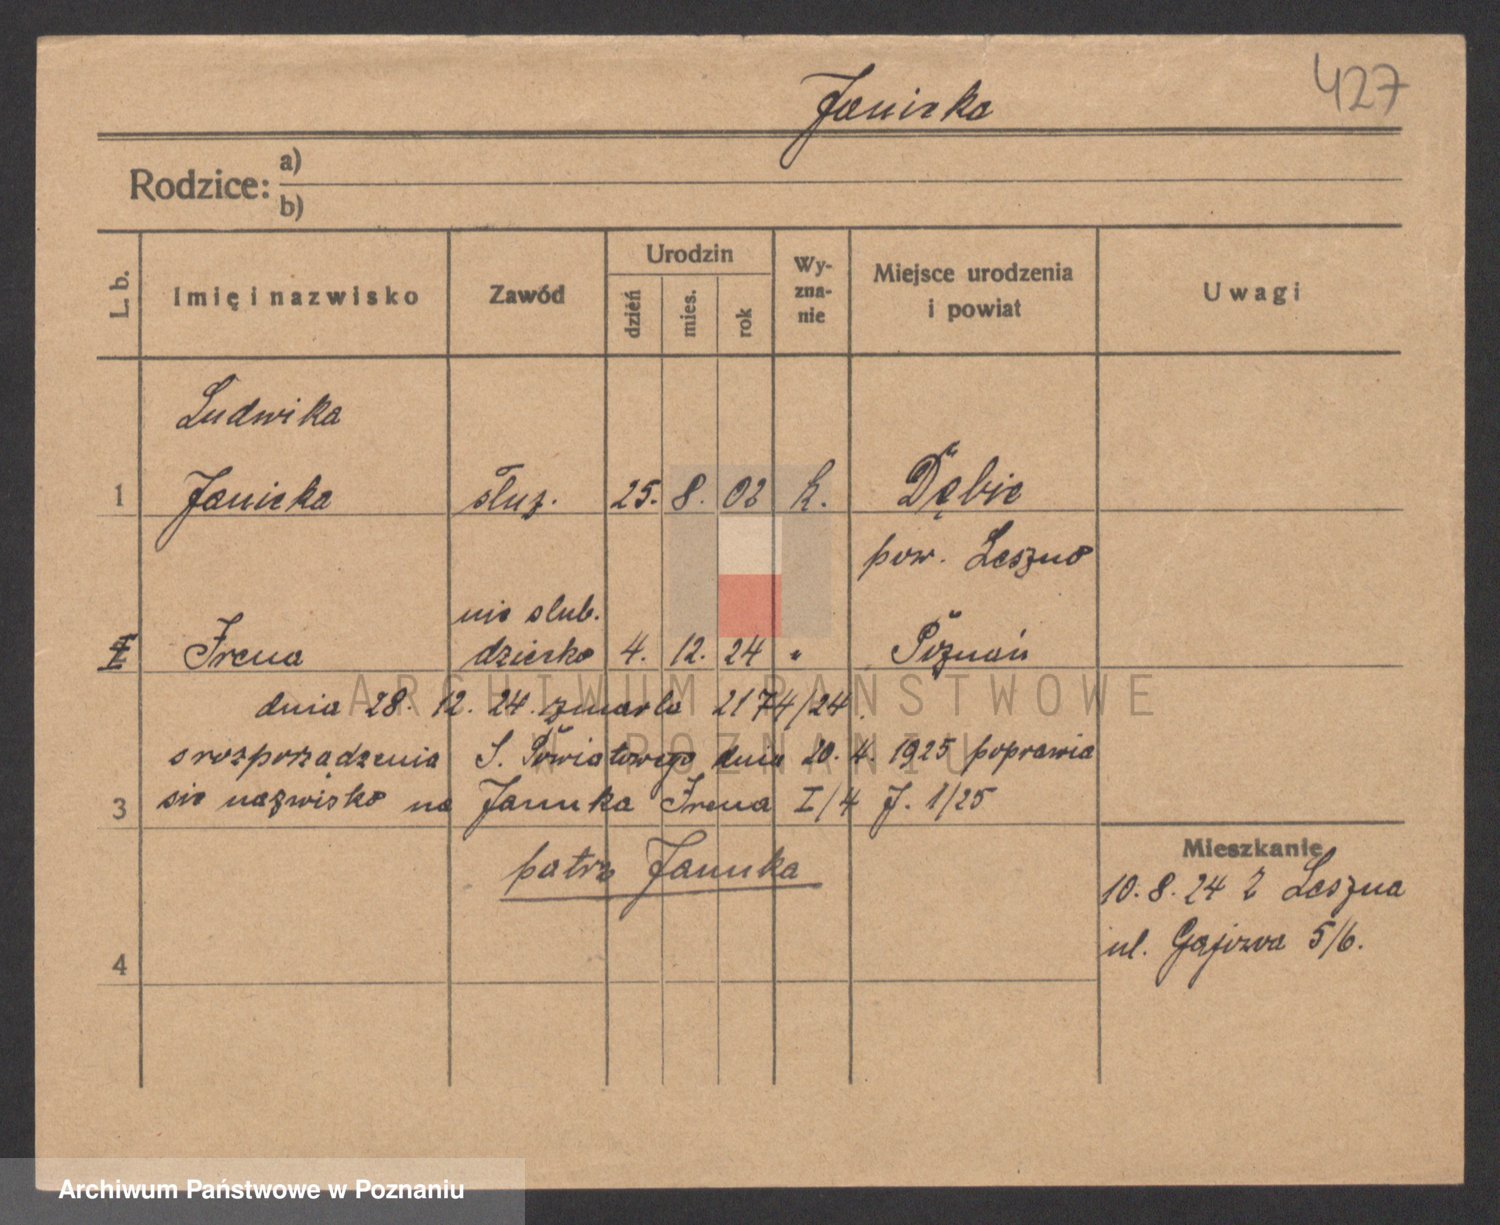 427
Janicka
Rodzice: a)
b)
L. b.
Imię i nazwisko
Zawód
Urodzin
dzień
mies.
rok
Wy-
zna-
nie
Miejsce urodzenia
i powiat
Uwagi
Ludwika
1 Janicka służ. 25. 8. 02 k. Dąbie
pow. Leszno
nie slub.
I Irena dziecko 4. 12. 24 " Poznań
dnia 28. 12. 24. zmarła 2174/24.
s rozporządzenia S. Powiatowego dnia 20. 4. 1925 poprawia
3 sie nazwisko na Janicka Irena I/4 J. 1/25
patrz Janicka
4
Mieszkanie
10. 8. 24 z Leszna
ul. Gajowa 5/6.
ARCHIWUM PAŃSTWOWE
W POZNANIU
Archiwum Państwowe w Poznaniu